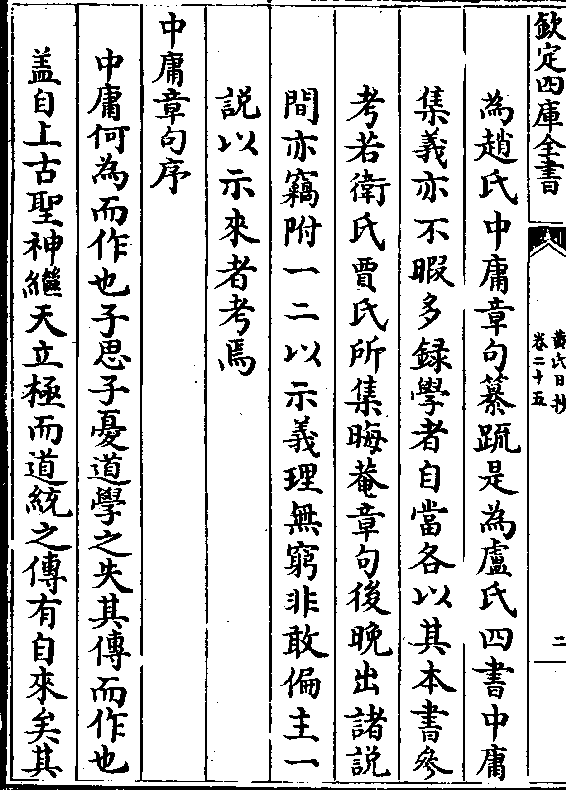 欽定四庫全書
黄氏日抄
卷二十五
二
為趙氏中庸章句纂䟽是為盧氏四書中庸
集義亦不暇多録學者自當各以其本書參
考若衛氏賈氏所集晦菴章句後晚出諸説
間亦竊附一二以示義理無窮非敢偏主一
説以示來者考焉
中庸章句序
中庸何為而作也子思子憂道學之失其傳而作也
盖自上古聖神繼天立極而道統之傳有自來矣其